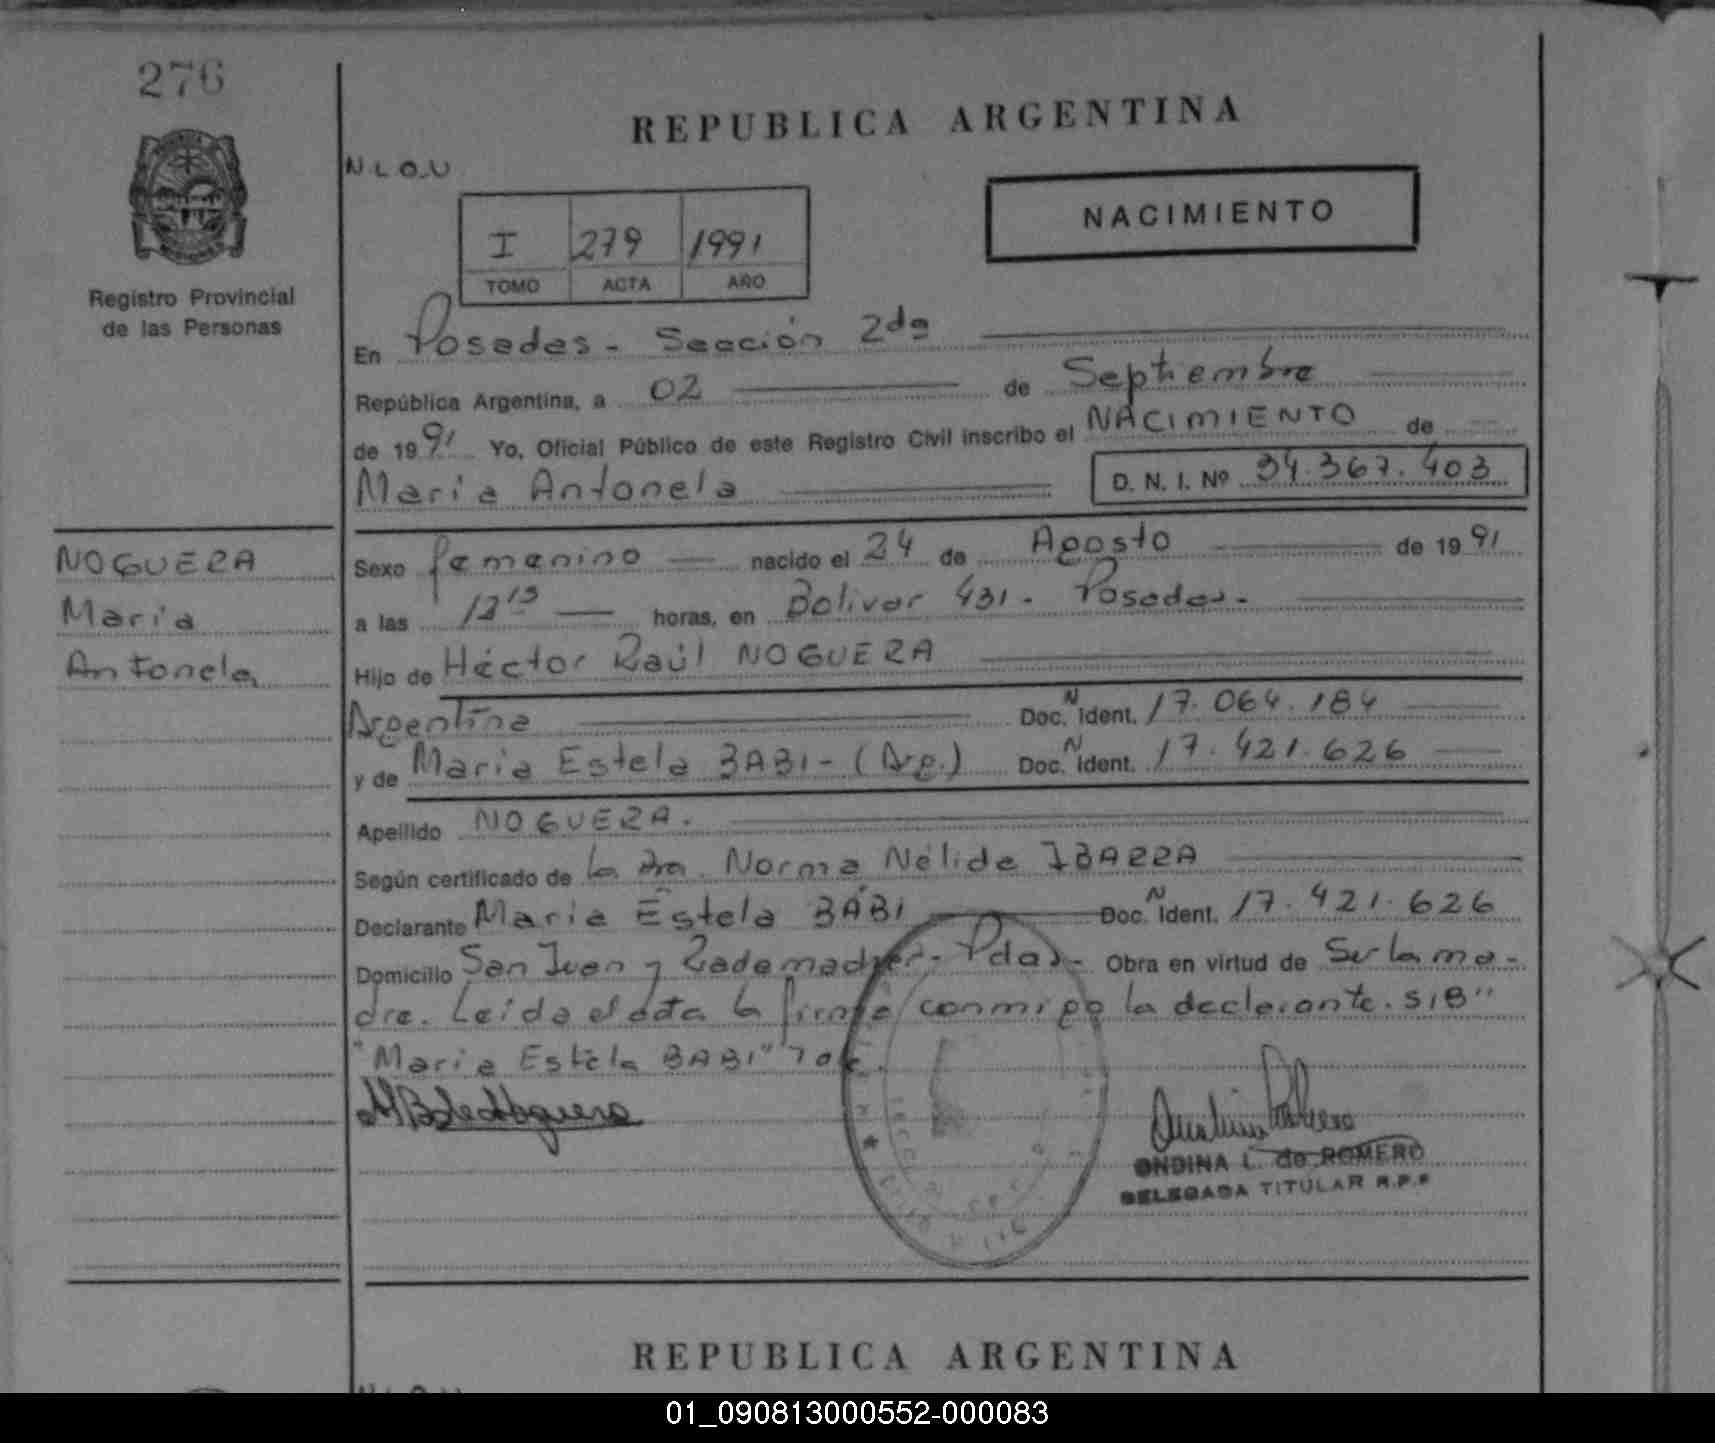 276
REPUBLICA ARGENTINA
N.L.O.U
NACIMIENTO
I 279 1991
TOMO ACTA AÑO
Registro Provincial
de las Personas
En Posadas - Sección 2da
República Argentina, a 02 de Septiembre
de 1991 Yo, Oficial Público de este Registro Civil inscribo el NACIMIENTO de
María Antonela D. N. I. Nº 34.367.403
NOGUERA
María
Antonela
Sexo femenino nacido el 24 de Agosto de 1991
a las 12 15 horas, en Bolivar 431 - Posadas -
Hijo de Héctor Raúl NOGUERA
Argentina Doc. N Ident. 17.064.184
y de María Estela BABI - (Arg.) Doc. N Ident. 17.421.626
Apellido NOGUERA.
Según certificado de la Dra. Norma Nélida IBARRA
Declarante María Estela BABI Doc. N Ident. 17.421.626
Domicilio San Juan y Rademacher - Pdas - Obra en virtud de Ser la ma-
dre. Leída el acta la firma conmigo la declarante. S/B"
"María Estela BABI"
ONDINA L. de ROMERO
DELEGADA TITULAR R.P.P
REPUBLICA ARGENTINA
N.L.O.U
01_090813000552-000083